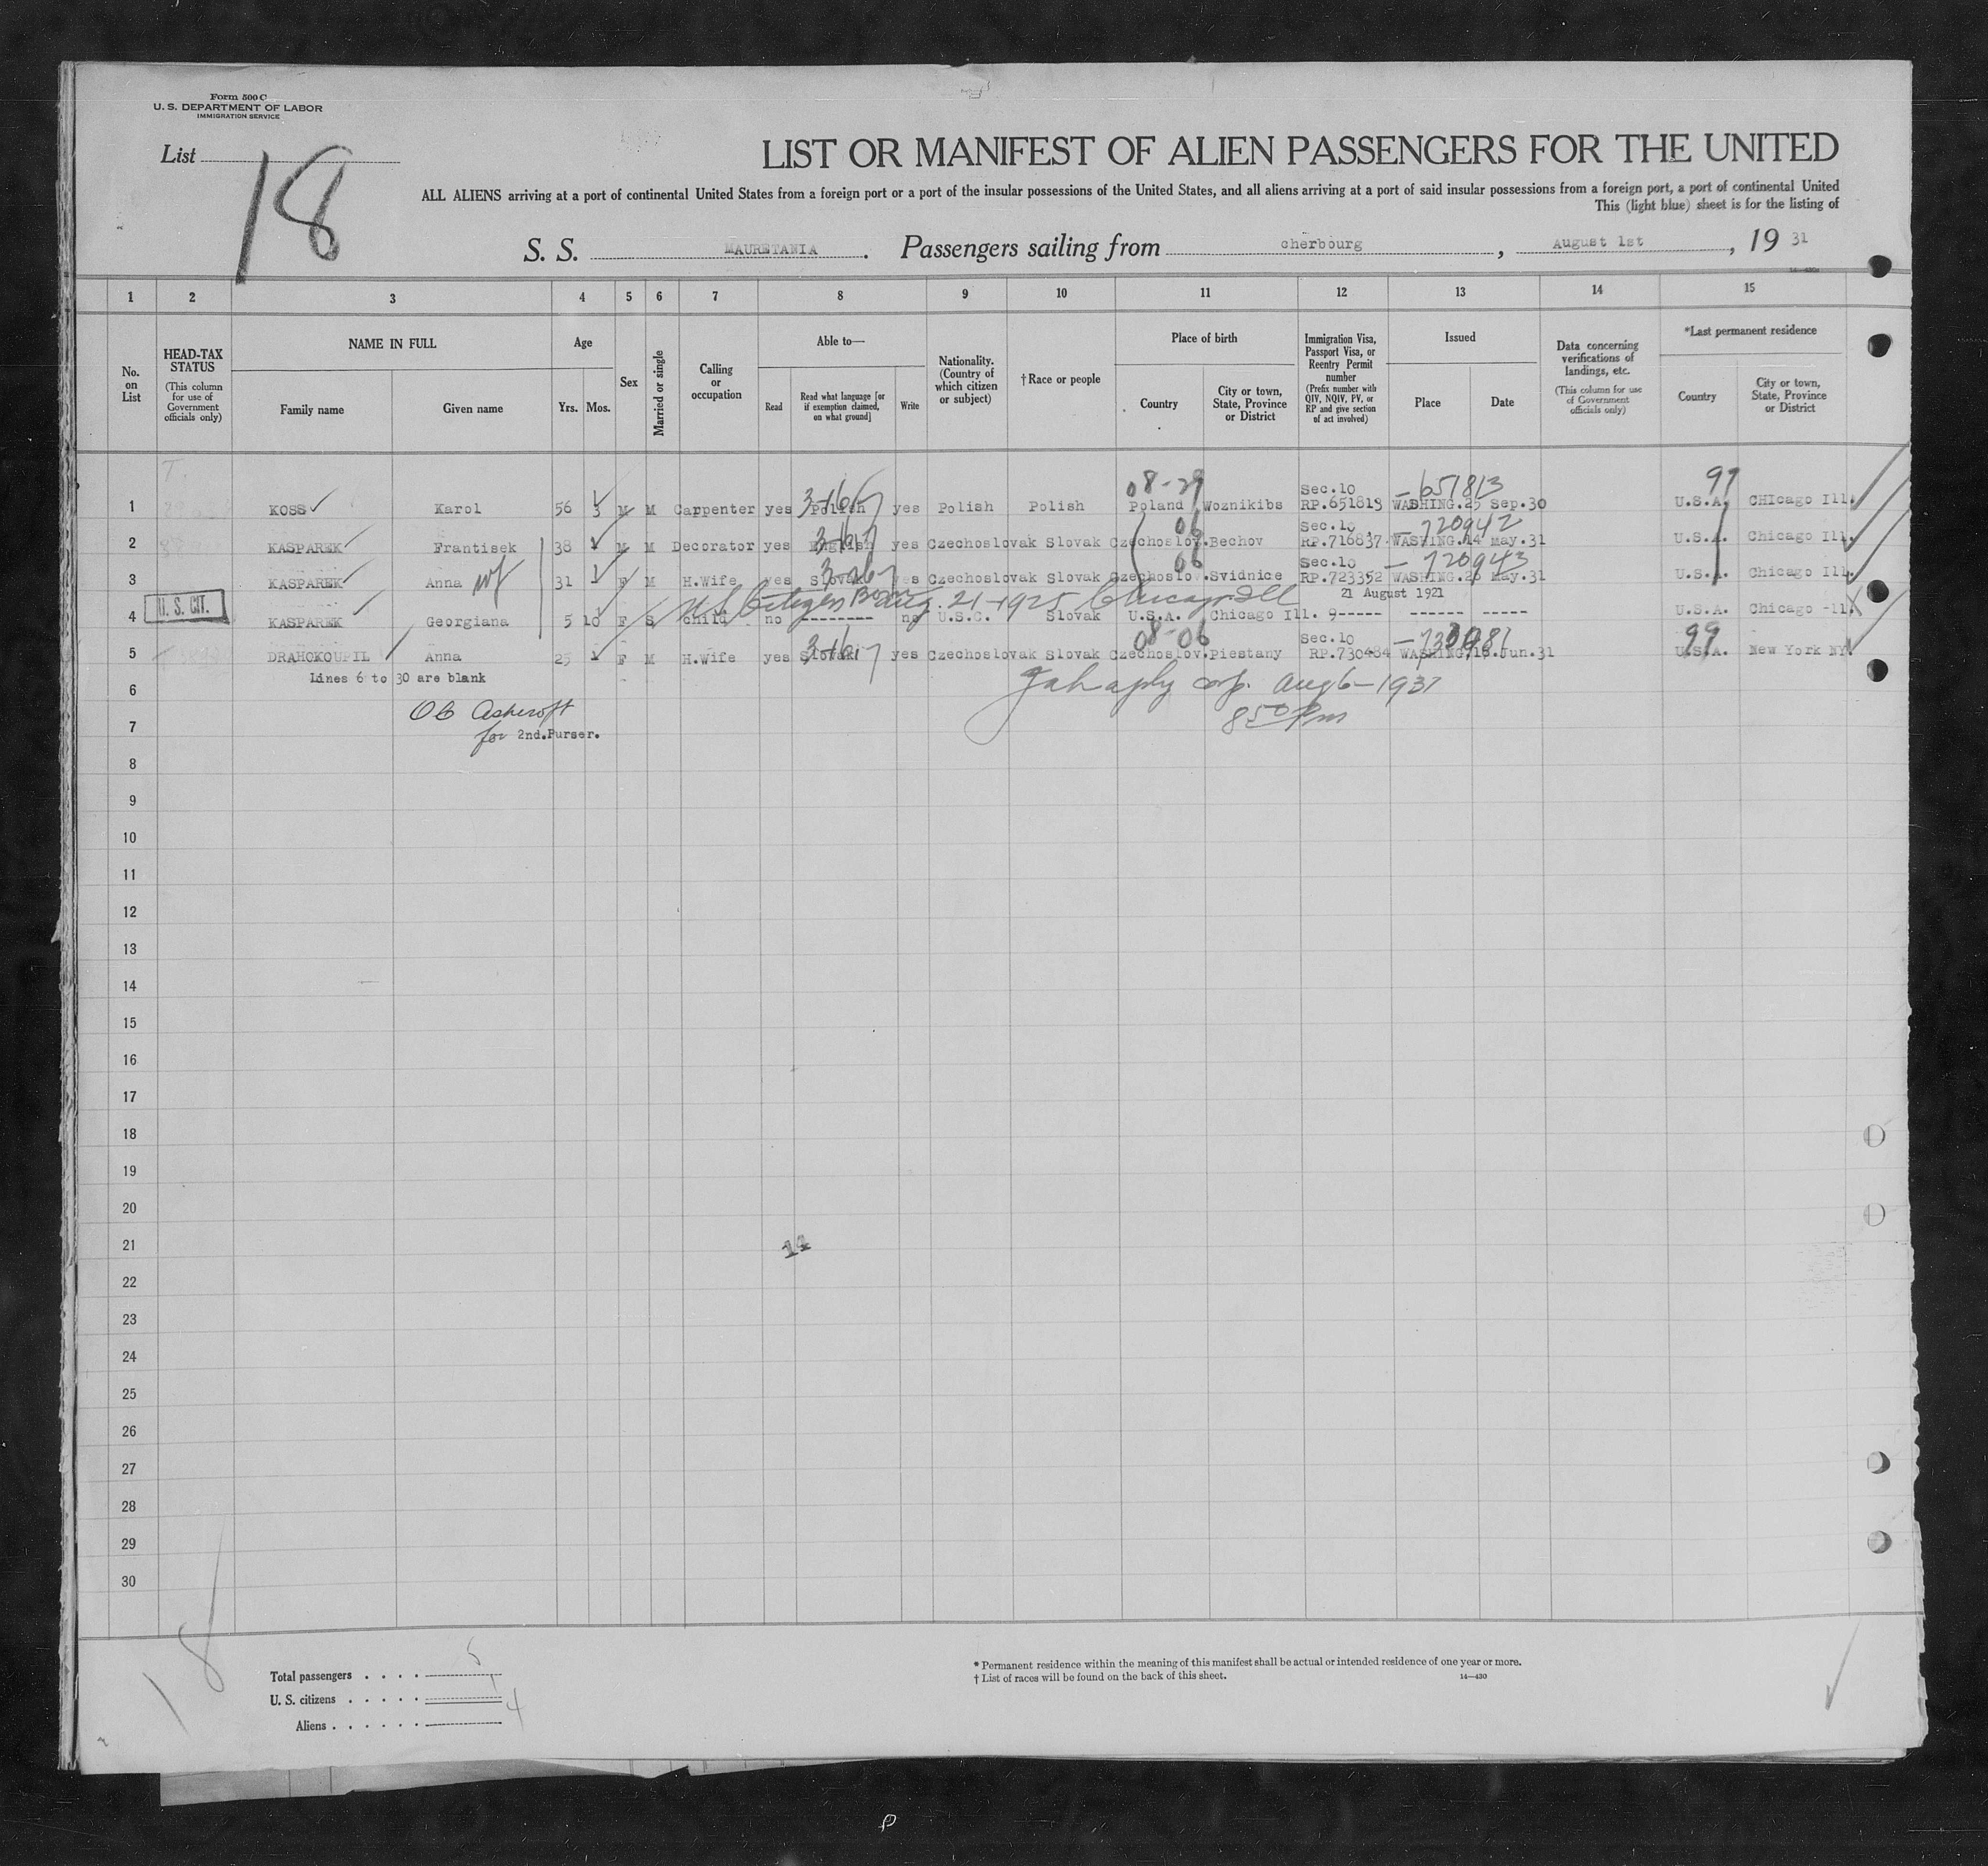 Form 500 C
U. S. DEPARTMENT OF LABOR
IMMIGRATION SERVICE
List 18
LIST OR MANIFEST OF ALIEN PASSENGERS FOR THE UNITED
ALL ALIENS arriving at a port of continental United States from a foreign port or a port of the insular possessions of the United States, and all aliens arriving at a port of said insular possessions from a foreign port, a port of continental United
This (light blue) sheet is for the listing of
S. S. MAURETANIA. Passengers sailing from cherbourg, August 1st, 19 31
1 2 3 4 5 6 7 8 9 10 11 12 13 14 15
No. on List
HEAD-TAX STATUS
(This column for use of Government officials only)
NAME IN FULL
Family name Given name
Age
Yrs. Mos.
Sex
Married or single
Calling or occupation
Able to—
Read
Read what language [or if exemption claimed, on what ground]
Write
Nationality. (Country of which citizen or subject)
† Race or people
Place of birth
Country
City or town, State, Province or District
Immigration Visa, Passport Visa, or Reentry Permit number
(Prefix number with QIV, NQIV, PV, or RP and give section of act involved)
Issued
Place Date
Data concerning verifications of landings, etc.
(This column for use of Government officials only)
*Last permanent residence
Country
City or town, State, Province or District
08-29 Sec.10 -651813 99
1 KOSS Karol 56 3 M M Carpenter yes Polish yes Polish Polish Poland Woznikibs RP.651813 WASHING.25 Sep.30 U.S.A. CHIcago Ill.
06 Sec.10 -720942
2 KASPAREK Frantisek 38 M M Decorator yes English yes Czechoslovak Slovak Czechoslov. Bechov RP.716837 WASHING.14 May.31 U.S.A. Chicago Ill.
06 Sec.10 -720943
3 KASPAREK Anna wf 31 F M H.Wife yes Slovak yes Czechoslovak Slovak Czechoslov. Svidnice RP.723352 WASHING.26 May.31 U.S.A. Chicago Ill.
U. S. CIT. US Citizen Born Aug. 21-1925 Chicago Ill 21 August 1921
4 KASPAREK Georgiana 5 10 F S child no -------- no U.S.C. Slovak U.S.A. Chicago Ill. 9----- ------ ----- U.S.A. Chicago -ll.
08-06 Sec.10 99
5 DRAHOKOUPIL Anna 25 F M H.Wife yes Slovak yes Czechoslovak Slovak Czechoslov. Piestany RP.730484 WASHING.15.Jun.31 U.S.A. New York NY.
Lines 6 to 30 are blank
6
Aug 6-1931
Ashcroft
7
8 50 Pm
for 2nd.Purser.
8
9
10
11
12
13
14
15
16
17
18
19
20
21
14
22
23
24
25
26
27
28
29
30
18
Total passengers . . . . 5
U. S. citizens . . . . . 1
Aliens . . . . . . 4
* Permanent residence within the meaning of this manifest shall be actual or intended residence of one year or more.
† List of races will be found on the back of this sheet.
14—430